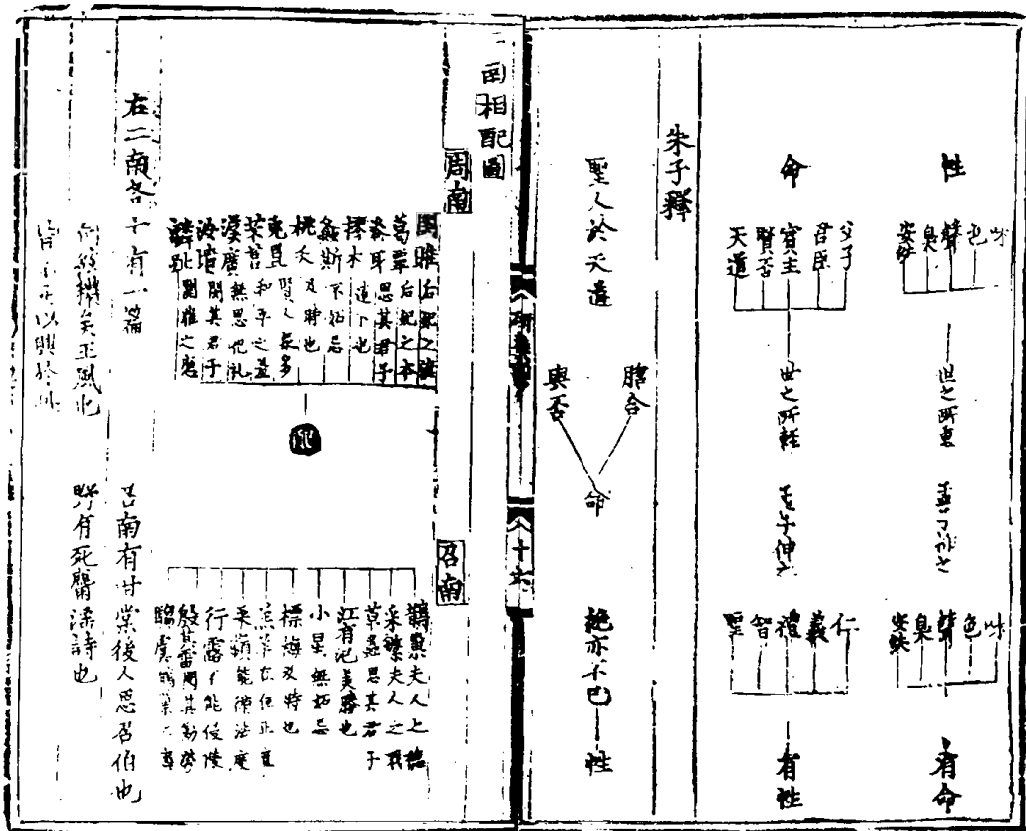 性
味
色
聲
臭
安佚
世之所重
味
色
聲
臭
安佚
有命
命
父子
君臣
賓主
賢否
天道
世之所輕
孟子伸之
仁
義
禮
智
聖
有性
朱子釋
聖人於天道
脗合
與否
命
純亦不已
性
十六
二南相配圖
周南
關雎后妃之德
葛覃后妃之本
卷耳思其君子
樛木逮下也
螽斯不妬忌
桃夭及時也
兎罝賢人衆多
芣苢和平之益
漢廣無思犯礼
汝墳閔其君子
麟趾關雎之應
配
召南
鵲巢夫人之德
采蘩夫人之職
草蟲思其君子
江有汜美媵也
小星無妬忌
摽梅及時也
羔羊在位正直
采蘋能循法度
行露不能侵陵
殷其雷閔其勤勞
騶虞鵲巢之應
右二南各十有一篇
召南有甘棠後人思召伯也
何彼穠矣王風也
野有死麕淫詩也